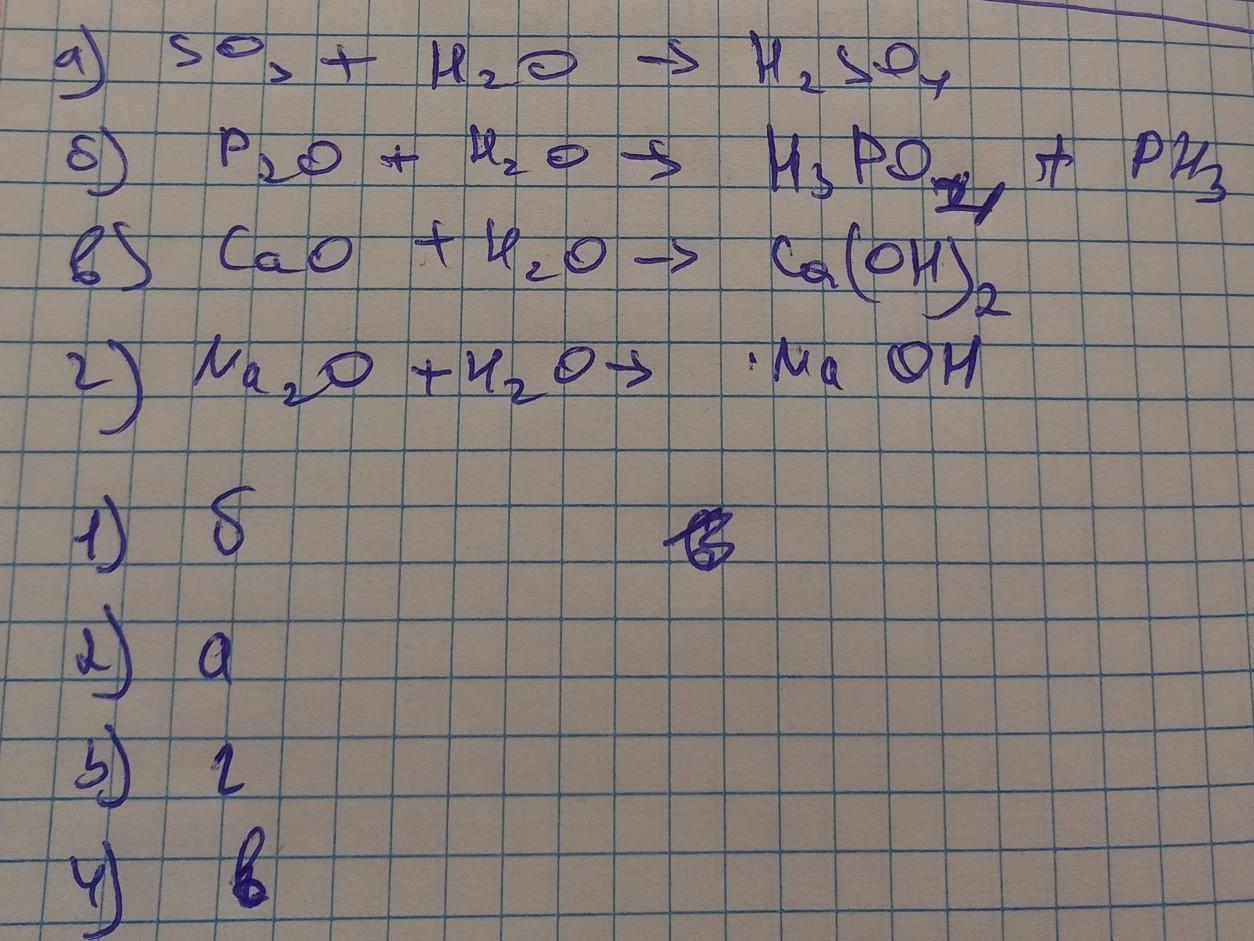 а) SO₃ + H₂O → H₂SO₄
б) P₂O + H₂O → H₃PO₄ + PH₃
в) CaO + H₂O → Ca(OH)₂
г) Na₂O + H₂O → NaOH
1) б
2) а
3) г
4) в